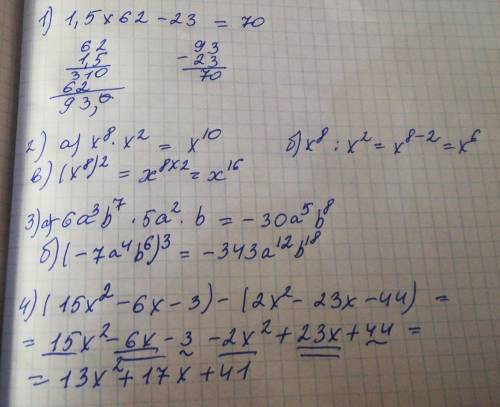 1) 1,5 x 62 - 23 = 70
62
1,5
310
62
93,0
93
- 23
70
2) а) x⁸ · x² = x¹⁰ б) x⁸ : x² = x⁸⁻² = x⁶
в) (x⁸)² = x⁸ˣ² = x¹⁶
3) а) -6a³b⁷ · 5a² · b = -30a⁵b⁸
б) (-7a⁴b⁶)³ = -343a¹²b¹⁸
4) (15x² - 6x - 3) - (2x² - 23x - 44) =
= 15x² - 6x - 3 - 2x² + 23x + 44 =
= 13x² + 17x + 41